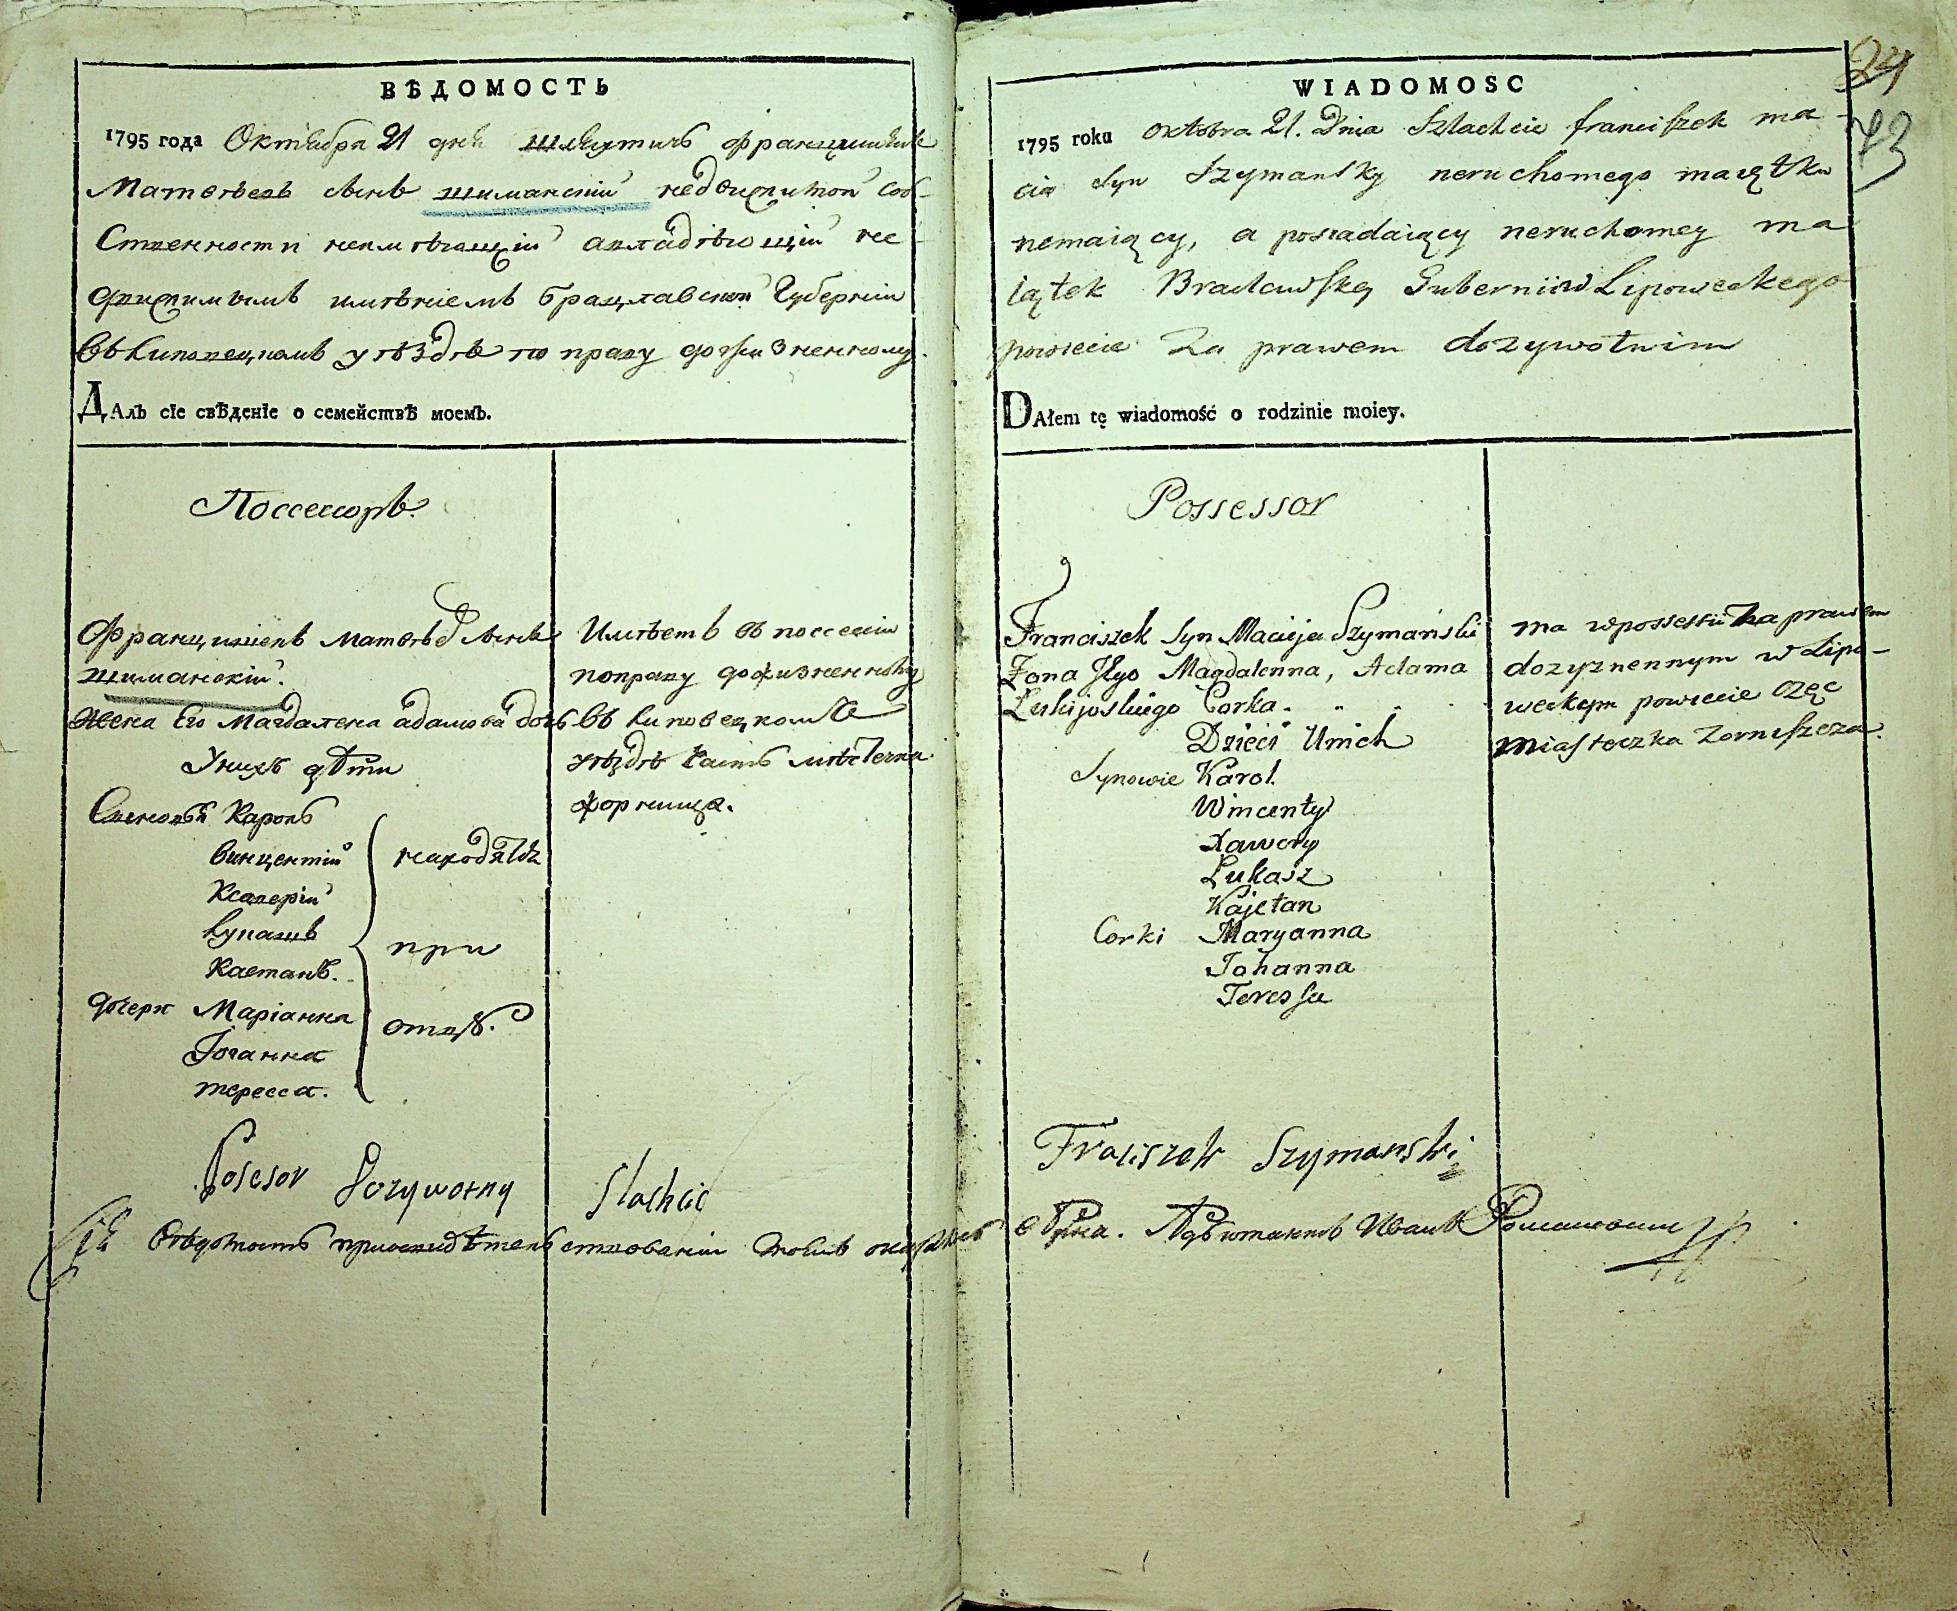 ВѢДОМОСТЬ
1795 года Октября 21 дня шляхтичь Францишекъ
Матвѣевъ сынъ Шиманскій недвижимой соб-
ственности неимѣющій авладѣющій не
движимымъ имѣніемъ Брацлавской Губерніи
въ Липовецкомъ уѣздѣ по праву дожизненному.
ДАлъ сіе свѣденіе о семействѣ моемъ.
Поссесоръ.
Францишекъ Матвѣевъ сынъ
Шиманскій.
Жена Его Магдалена адамова дочь
Унихъ дѣти
Сыновья Кароль
Винцентій
Ксаверій
Лукашъ
Каетанъ.
дочери Маріанна
Іоганна
тересса.
находятся
при
отцѣ.
Имѣетъ въ поссесіи
поправу дожизненному
въ Липовецкомъ
уѣздѣ часть
Posesor Dozywotny Slachcic
WIADOMOSC
24
73
1795 roku oxtobra 21. Dnia Szlachcic franciszek ma-
cia Syn Szymansky neruchomego maiątku
nemaiący, a posiadaiący neruchomey ma
iątek Braclawskey Gubernii w Lipoweckego
powiecie Za prawem dozywotnim
DAłem tę wiadomość o rodzinie moiey.
Possessor
Franciszek Syn Macieja Szymański
Żona Jego Magdalenna, Adama
Corka . . . .
Dzieci Unich
Synowie Karol.
Wincenty
Xawery
Lukasz
Kajetan
Corki Maryanna
Johanna
Teressa
ma wpossessii Za prawem
dozyznennym w Lipo-
weckym powiecie częc
miasteczka Zorniszcza.
Fraciszek Szymanski
Сію Вѣдомость при освидѣтельствованіи